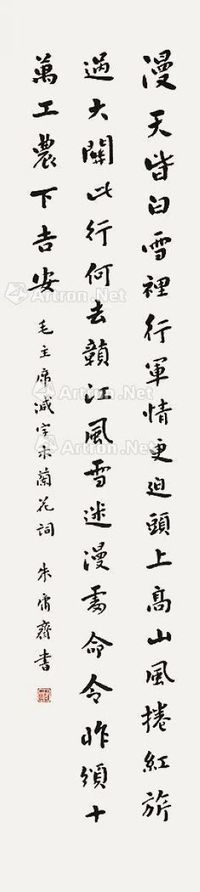 漫天皆白雪裡行軍情更迫頭上高山風捲紅旂
過大關此行何去贛江風雪迷漫處命令昨頒十
萬工農下吉安
毛主席減字木蘭花詞
朱霈齋書
Artron.Net
Artron.Net
Artron.Net
Artron.Net